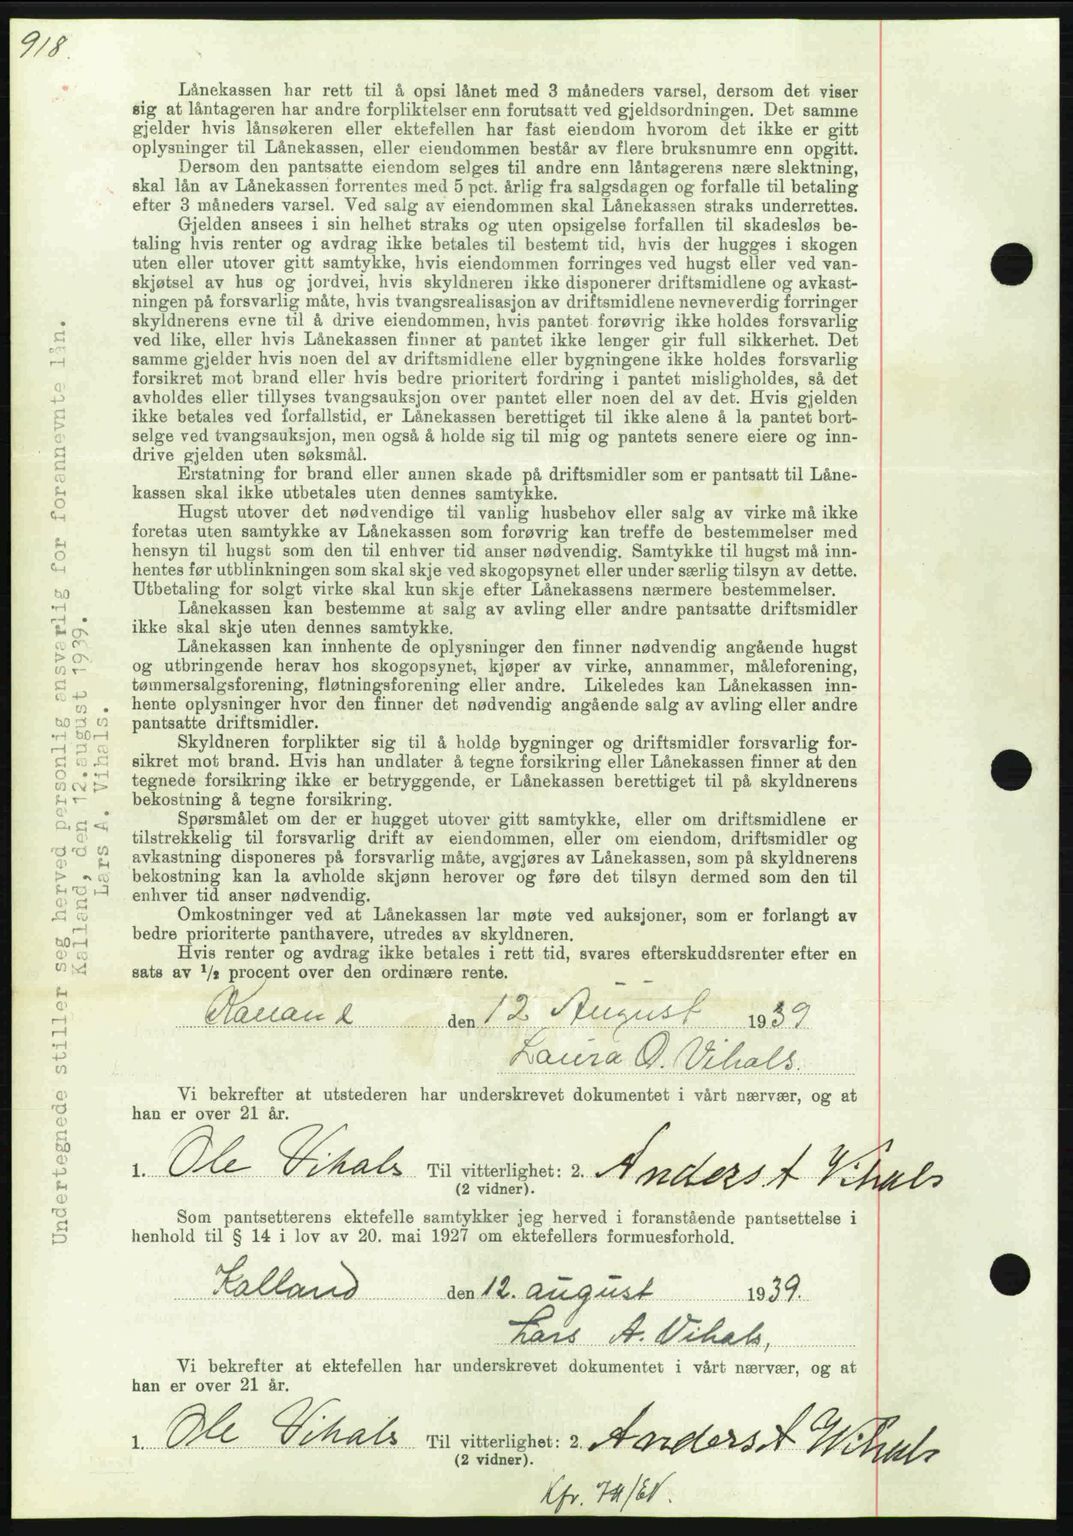 918.
Lånekassen har rett til å opsi lånet med 3 måneders varsel, dersom det viser
sig at låntageren har andre forpliktelser enn forutsatt ved gjeldsordningen. Det samme
gjelder hvis lånsøkeren eller ektefellen har fast eiendom hvorom det ikke er gitt
oplysninger til Lånekassen, eller eiendommen består av flere bruksnumre enn opgitt.
Dersom den pantsatte eiendom selges til andre enn låntagerens nære slektning,
skal lån av Lånekassen forrentes med 5 pct. årlig fra salgsdagen og forfalle til betaling
efter 3 måneders varsel. Ved salg av eiendommen skal Lånekassen straks underrettes.
Gjelden ansees i sin helhet straks og uten opsigelse forfallen til skadesløs be-
taling hvis renter og avdrag ikke betales til bestemt tid, hvis der hugges i skogen
uten eller utover gitt samtykke, hvis eiendommen forringes ved hugst eller ved van-
skjøtsel av hus og jordvei, hvis skyldneren ikke disponerer driftsmidlene og avkast-
ningen på forsvarlig måte, hvis tvangsrealisasjon av driftsmidlene nevneverdig forringer
skyldnerens evne til å drive eiendommen, hvis pantet forøvrig ikke holdes forsvarlig
ved like, eller hvis Lånekassen finner at pantet ikke lenger gir full sikkerhet. Det
samme gjelder hvis noen del av driftsmidlene eller bygningene ikke holdes forsvarlig
forsikret mot brand eller hvis bedre prioritert fordring i pantet misligholdes, så det
avholdes eller tillyses tvangsauksjon over pantet eller noen del av det. Hvis gjelden
ikke betales ved forfallstid, er Lånekassen berettiget til ikke alene å la pantet bort-
selge ved tvangsauksjon, men også å holde sig til mig og pantets senere eiere og inn-
drive gjelden uten søksmål.
Erstatning for brand eller annen skade på driftsmidler som er pantsatt til Låne-
kassen skal ikke utbetales uten dennes samtykke.
Hugst utover det nødvendige til vanlig husbehov eller salg av virke må ikke
foretas uten samtykke av Lånekassen som forøvrig kan treffe de bestemmelser med
hensyn til hugst som den til enhver tid anser nødvendig. Samtykke til hugst må inn-
hentes før utblinkningen som skal skje ved skogopsynet eller under særlig tilsyn av dette.
Utbetaling for solgt virke skal kun skje efter Lånekassens nærmere bestemmelser.
Lånekassen kan bestemme at salg av avling eller andre pantsatte driftsmidler
ikke skal skje uten dennes samtykke.
Lånekassen kan innhente de oplysninger den finner nødvendig angående hugst
og utbringende herav hos skogopsynet, kjøper av virke, annammer, måleforening,
tømmersalgsforening, fløtningsforening eller andre. Likeledes kan Lånekassen inn-
hente oplysninger hvor den finner det nødvendig angående salg av avling eller andre
pantsatte driftsmidler.
Skyldneren forplikter sig til å holde bygninger og driftsmidler forsvarlig for-
sikret mot brand. Hvis han undlater å tegne forsikring eller Lånekassen finner at den
tegnede forsikring ikke er betryggende, er Lånekassen berettiget til på skyldnerens
bekostning å tegne forsikring.
Spørsmålet om der er hugget utover gitt samtykke, eller om driftsmidlene er
tilstrekkelig til forsvarlig drift av eiendommen, eller om eiendom, driftsmidler og
avkastning disponeres på forsvarlig måte, avgjøres av Lånekassen, som på skyldnerens
bekostning kan la avholde skjønn herover og føre det tilsyn dermed som den til
enhver tid anser nødvendig.
Omkostninger ved at Lånekassen lar møte ved auksjoner, som er forlangt av
bedre prioriterte panthavere, utredes av skyldneren.
Hvis renter og avdrag ikke betales i rett tid, svares efterskuddsrenter efter en
sats av 1/2 procent over den ordinære rente.
den 12 August 1939
Laura O. Vihals.
Vi bekrefter at utstederen har underskrevet dokumentet i vårt nærvær, og at
han er over 21 år.
1. Ole Vihals Til vitterlighet: 2. Anders A Vihals
(2 vidner).
Som pantsetterens ektefelle samtykker jeg herved i foranstående pantsettelse i
henhold til § 14 i lov av 20. mai 1927 om ektefellers formuesforhold.
Kalland den 12. august 1939.
Lars A. Vihals,
Vi bekrefter at ektefellen har underskrevet dokumentet i vårt nærvær, og at
han er over 21 år.
1. Ole Vihals Til vitterlighet: 2. Anders A Vihals
(2 vidner).
Kfr.
Undertegnede stiller seg herved personlig ansvarlig for forannevnte lån.
Kalland, den 12.august 1939.
Lars A. Vihals.